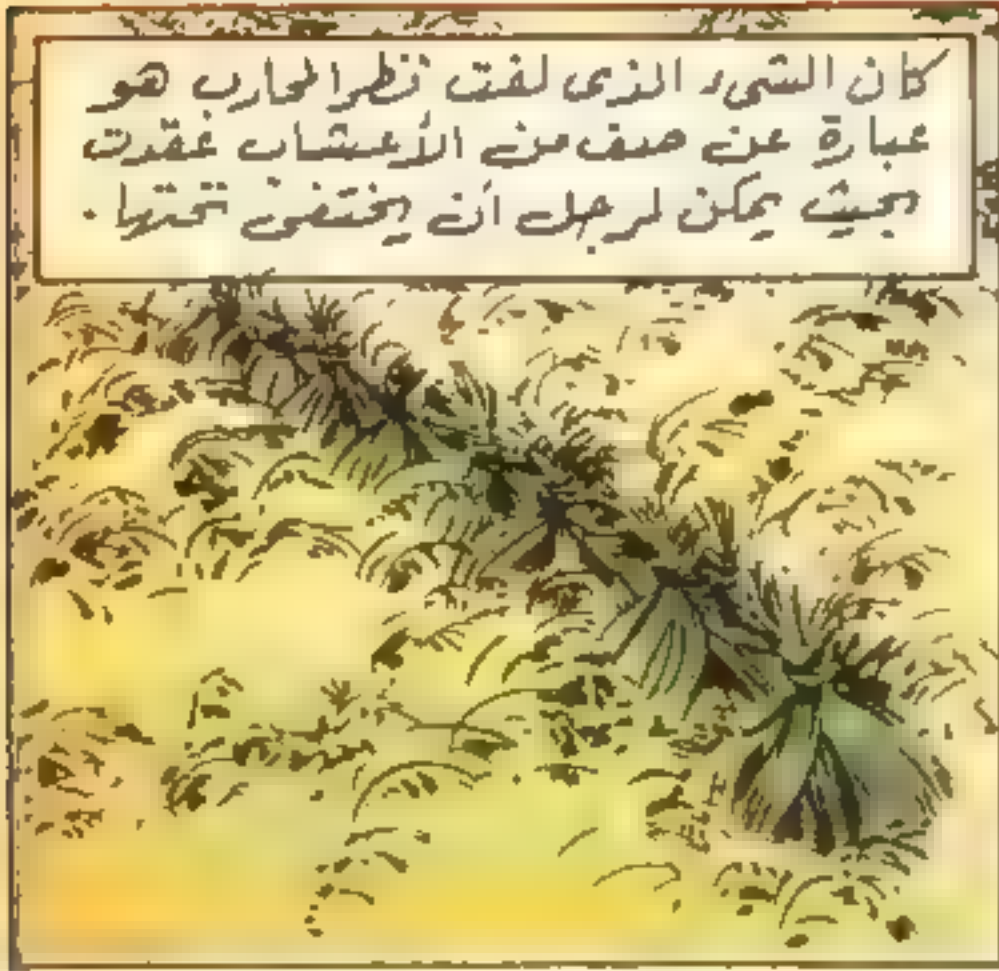 كان الشىء الذى لفت نظر المحارب هو
عبارة عن صف من الأعشاب عقدت
بحيث يمكن لرجل أن يختفى تحتها .